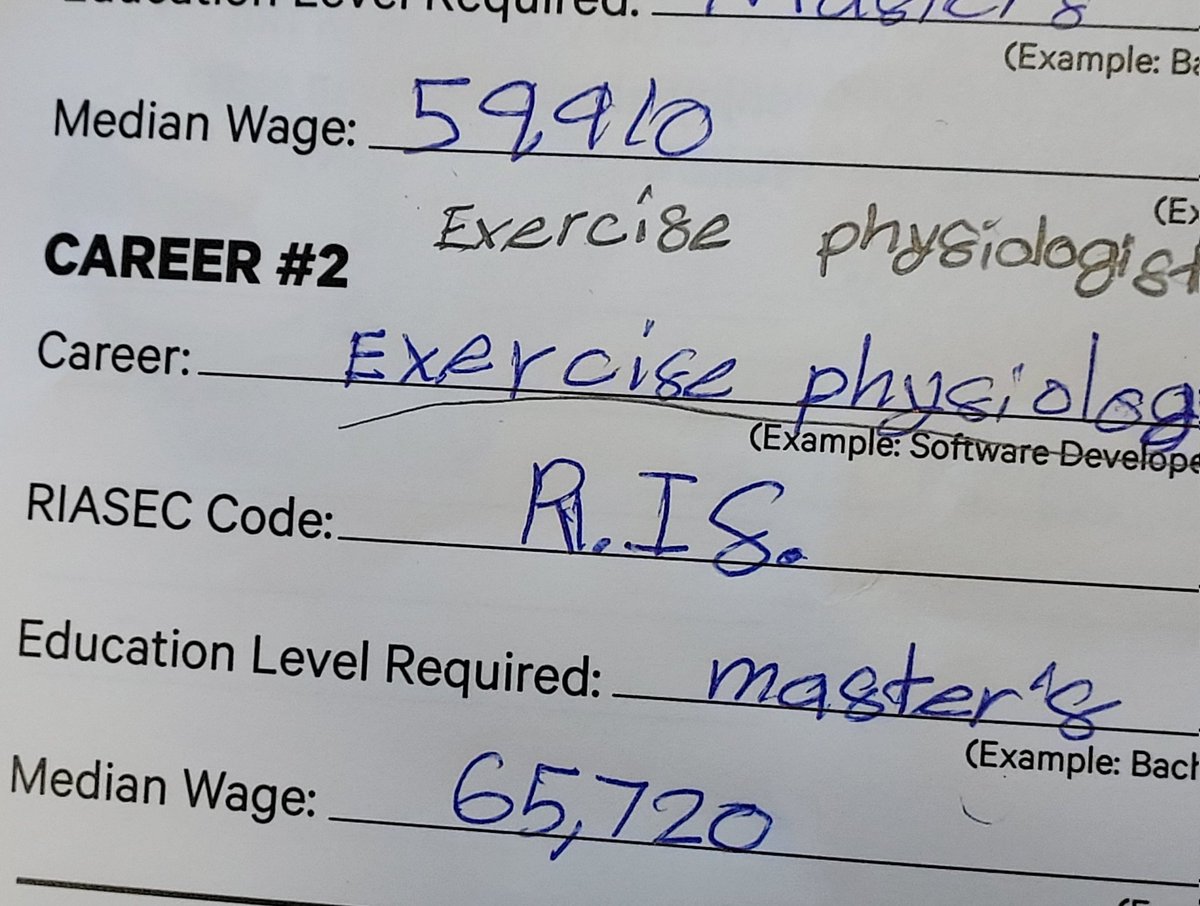 Education Level Required: Master's
(Example: Ba
Median Wage: 59,910
(Ex
Exercise physiologist
CAREER #2
Career: Exercise physiolog
(Example: Software Develope
RIASEC Code: R.IS.
Education Level Required: master's
(Example: Bach
Median Wage: 65,720
(E